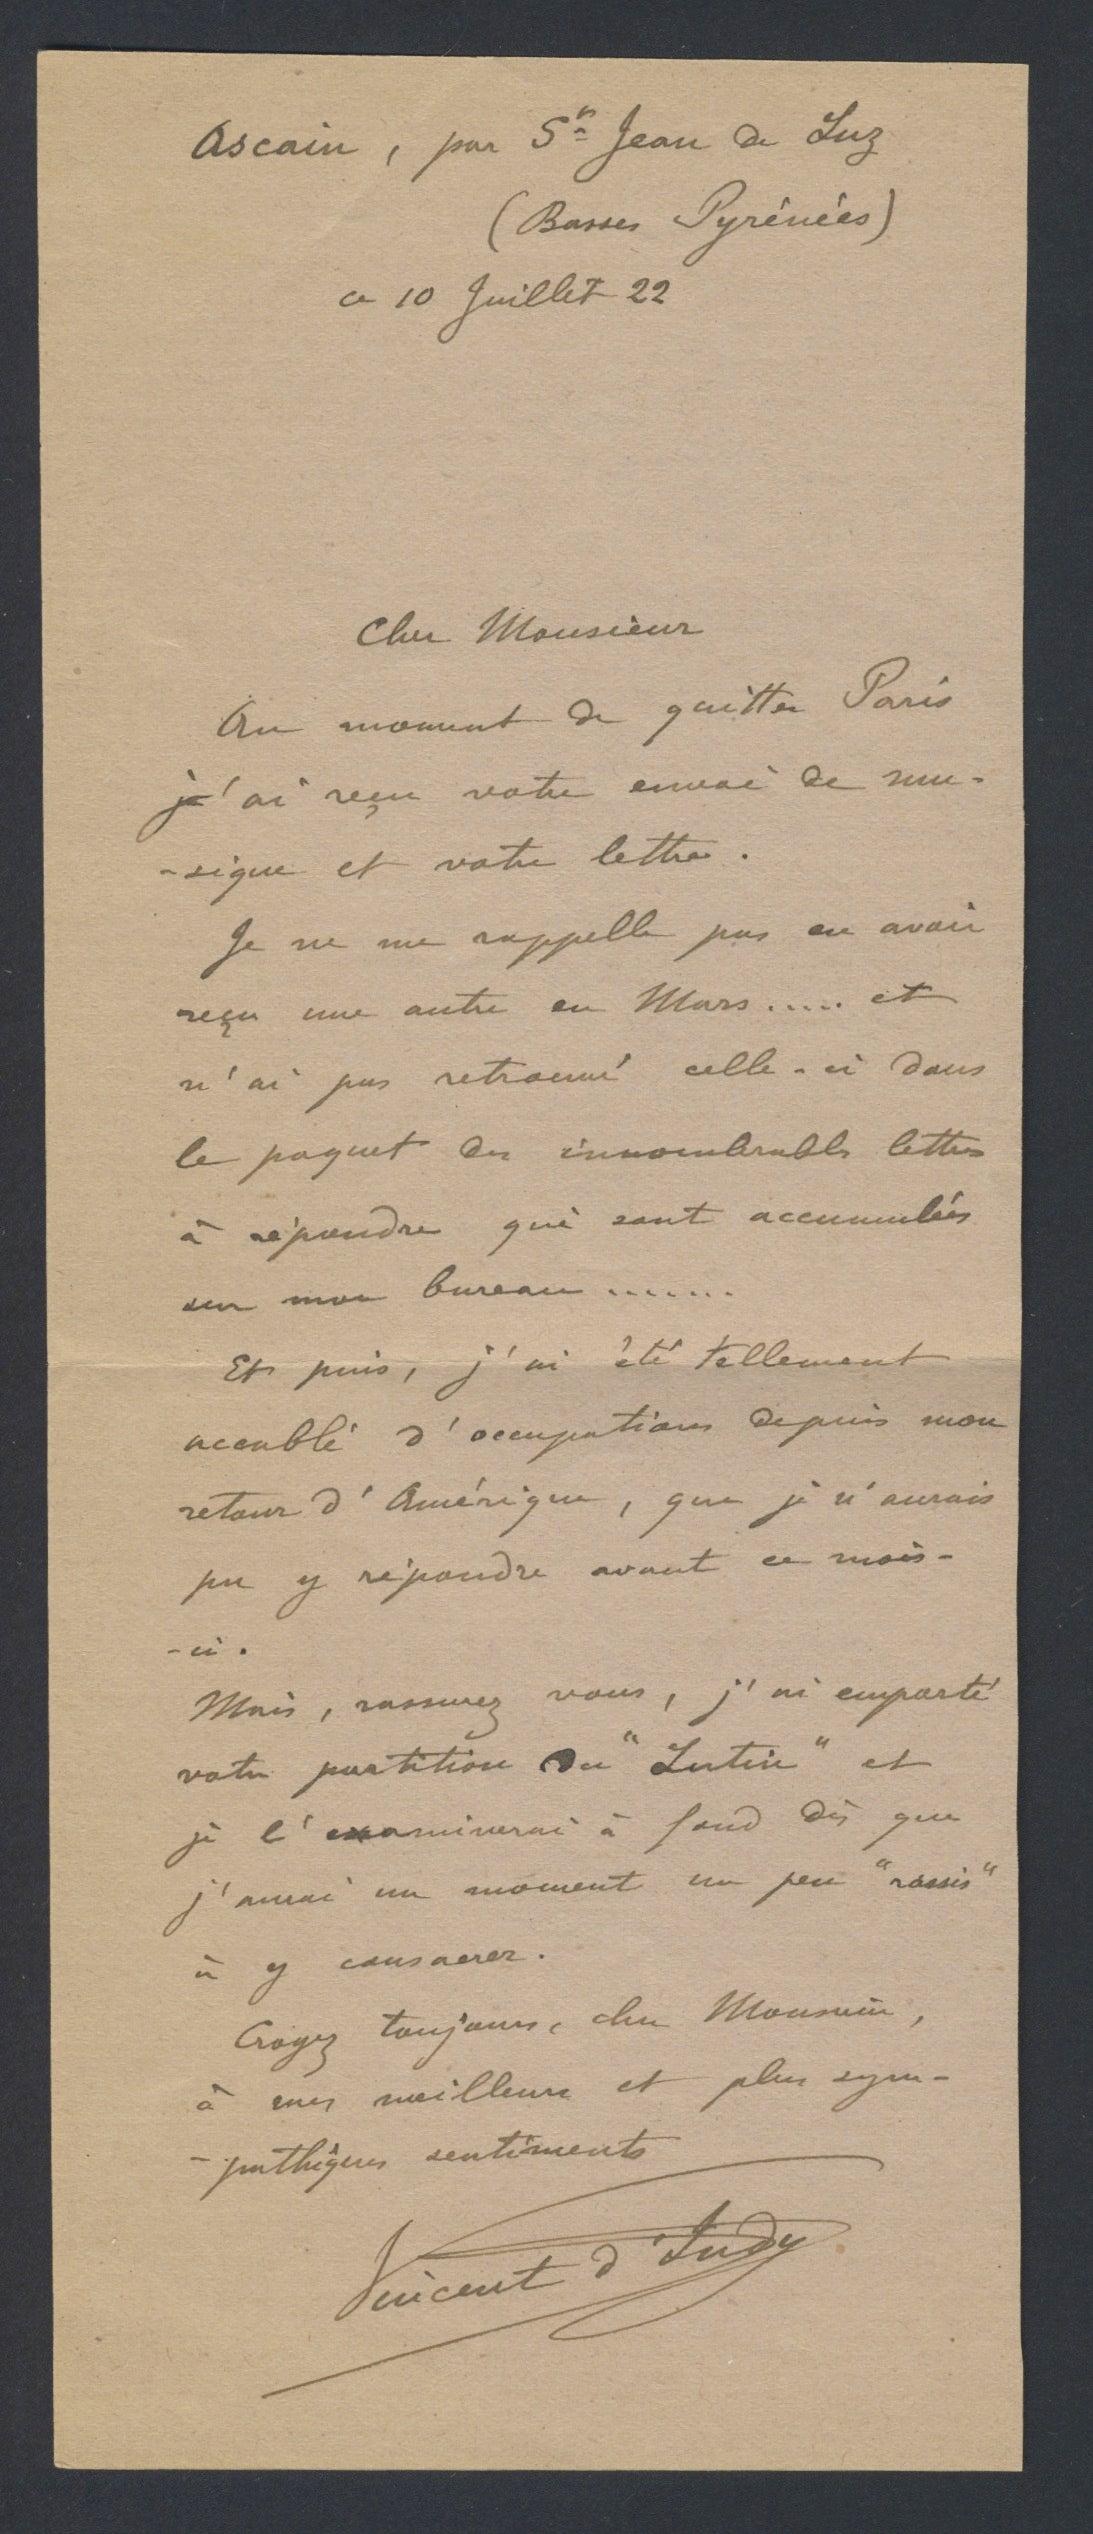 Ascain, par St Jean de Luz
(Basses Pyrénées)
ce 10 Juillet 22
Cher Monsieur
Au moment de quitter Paris
j'ai reçu votre envoi de mu-
-sique et votre lettre.
Je ne me rappelle pas en avoir
reçu une autre en Mars ..... et
n'ai pas retrouvé celle-ci dans
le paquet des innombrables lettres
à répondre qui sont accumulées
sur mon bureau .......
Et puis, j'ai été tellement
accablé d'occupations depuis mon
retour d'Amérique, que je n'aurais
pu y répondre avant ce mois-
-ci.
Mais, rassurez vous, j'ai emporté
votre partition du "Lutin" et
je l'examinerai à fond dès que
j'aurai un moment un peu "rassis"
à y consacrer.
Croyez toujours, cher Monsieur,
à mes meilleurs et plus sym-
-pathiques sentiments
Vincent d'Indy